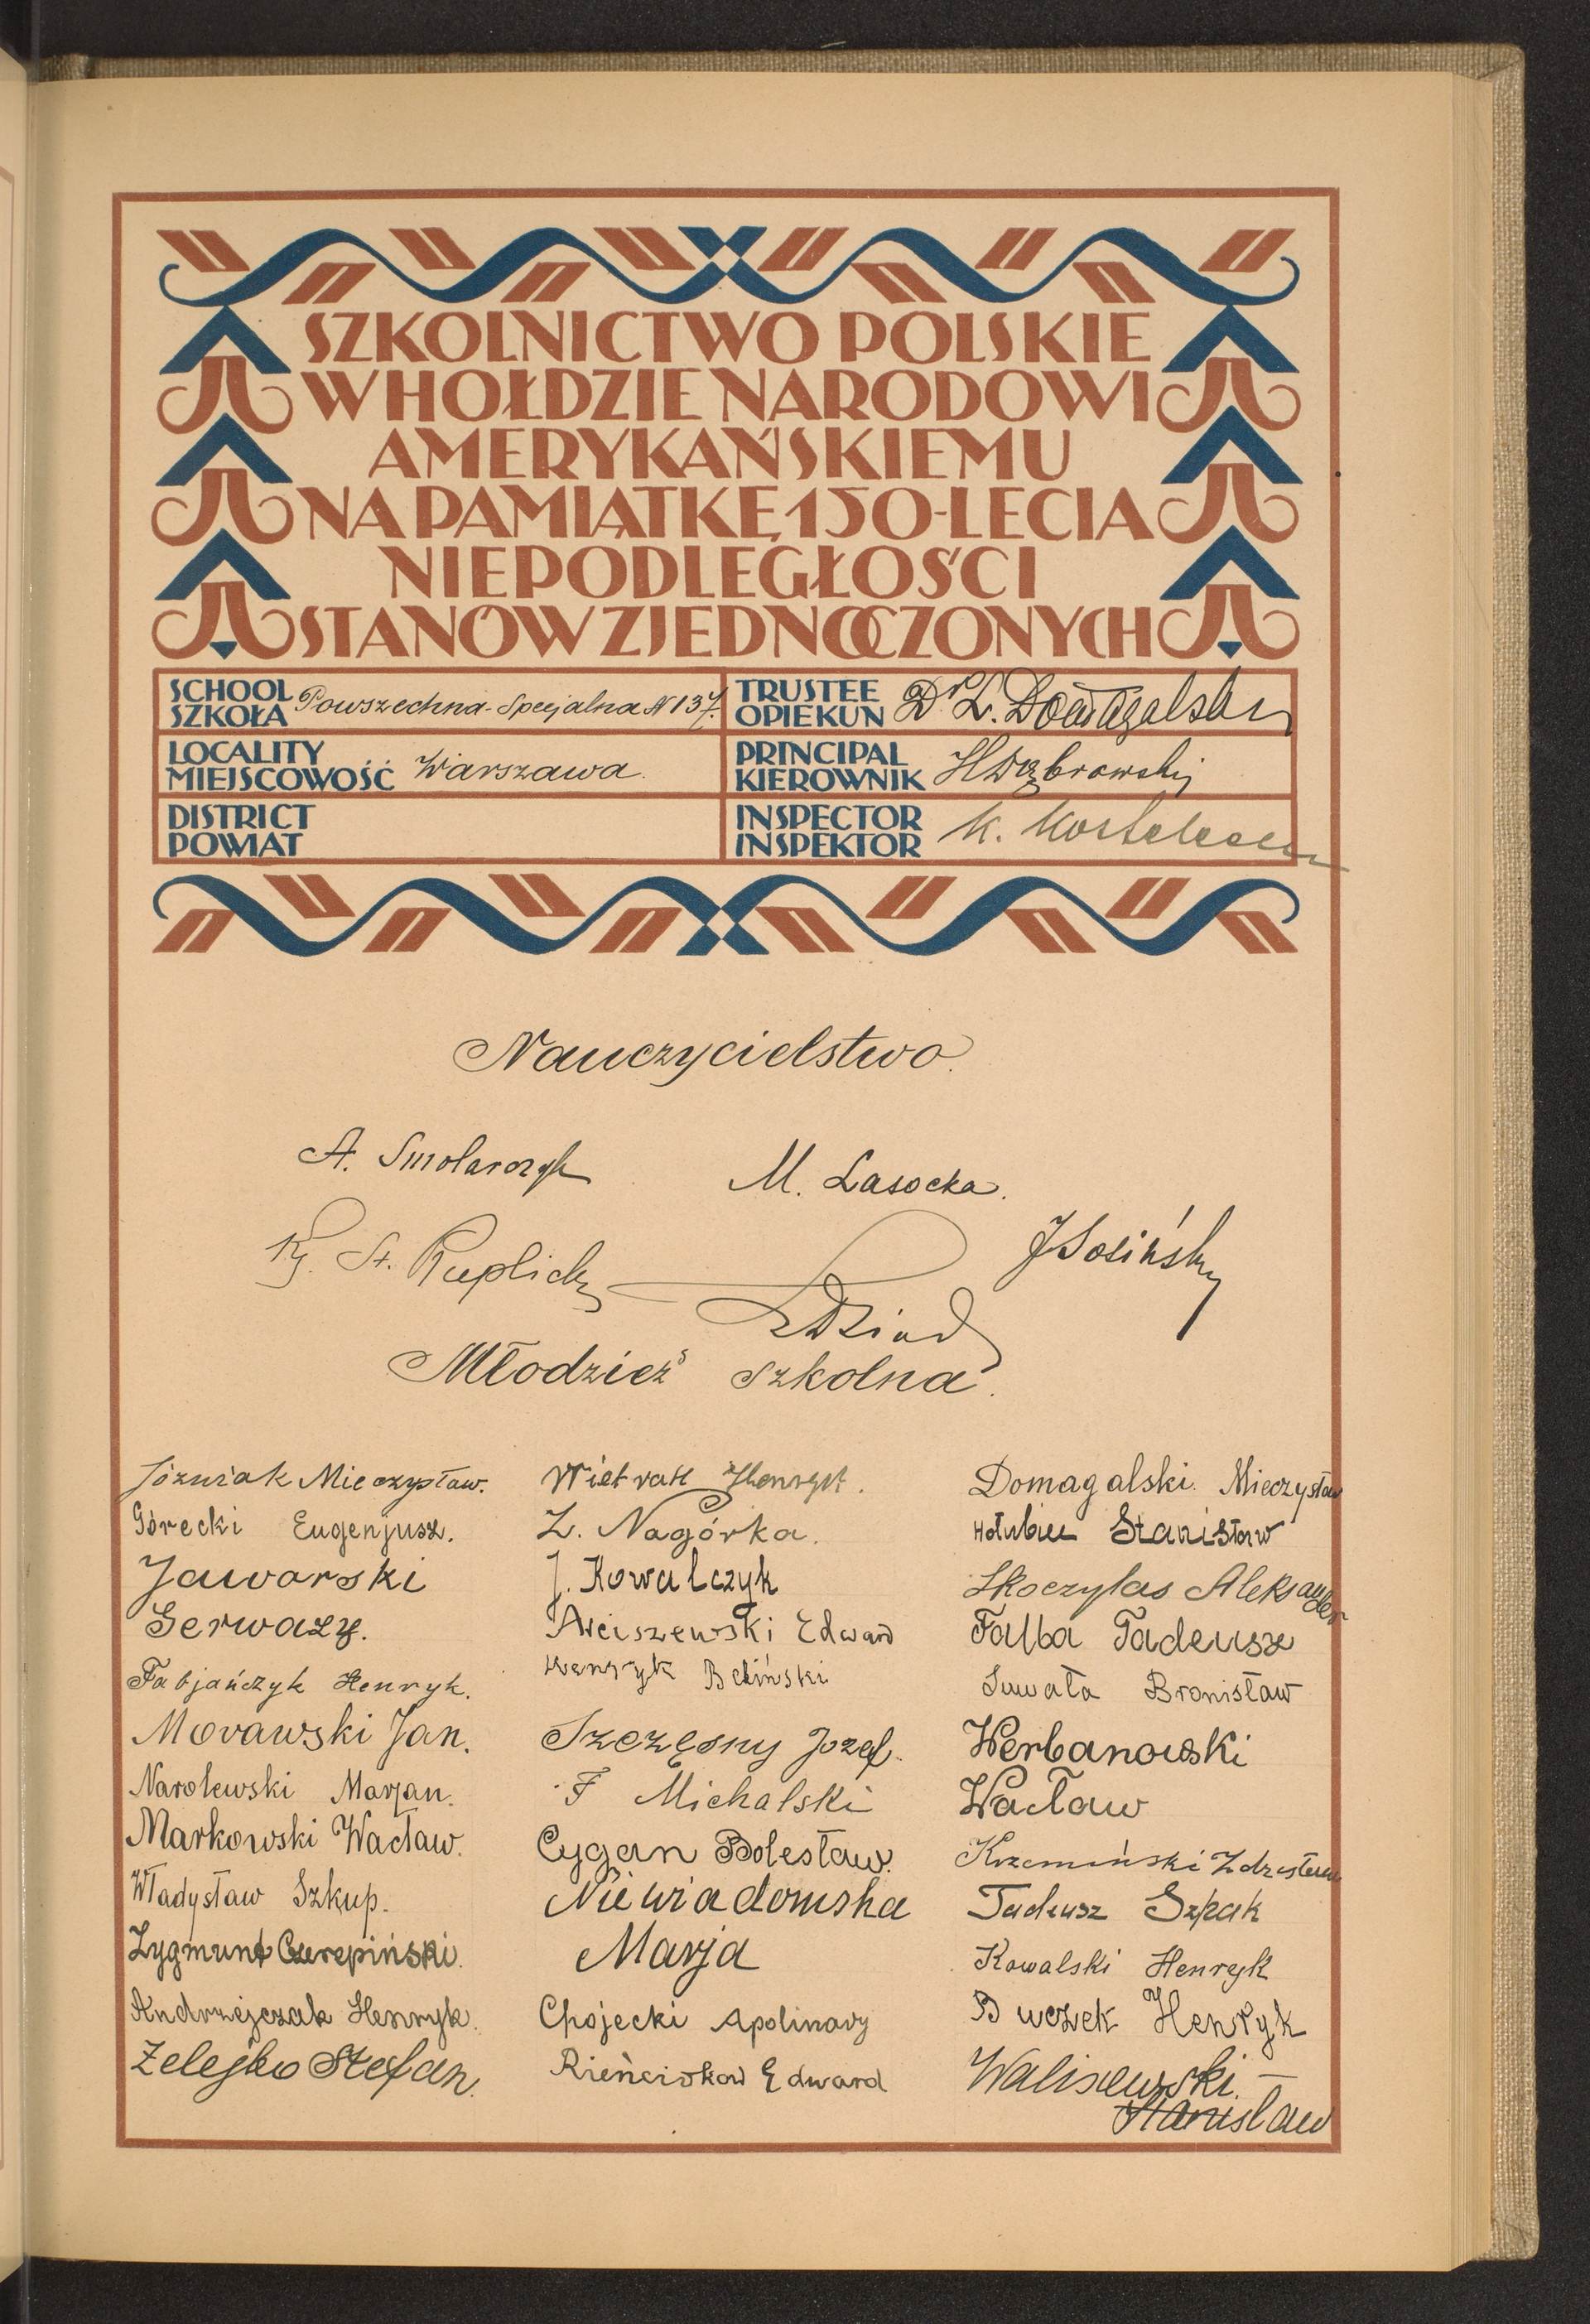 SZKOLNICTWO POLSKIE
W HOŁDZIE NARODOWI
AMERYKAŃSKIEMU
NA PAMIĄTKĘ 150-LECIA
NIEPODLEGŁOŚCI
STANÓW ZJEDNOCZONYCH
SCHOOL
SZKOŁA Powszechna-Specjalna N 137.
TRUSTEE
OPIEKUN Dr L. Domagalski
LOCALITY
MIEJSCOWOŚĆ Warszawa.
PRINCIPAL
KIEROWNIK H Dąbrowski
DISTRICT
POWIAT
INSPECTOR
INSPEKTOR K.
Nauczycielstwo.
A. Smolarczyk
M. Lasocka.
St.
J Sosiński
Młodzież szkolna.
Jóźwiak Mieczysław.
Górecki Eugenjusz.
Jaworski
Gerwazy.
Fabjańczyk Henryk.
Morawski Jan.
Narolewski Marjan.
Markowski Wacław.
Władysław Szkup.
Zygmunt Czerepiński.
Andrzejczak Henryk.
Żelejko Stefan.
Wietrak Henryk.
Z. Nagórka.
J. Kowalczyk
Arciszewski Edward
Henryk Beliński
Szczęsny Józef.
F Michalski
Cygan Bolesław.
Niewiadomska
Marja
Chojecki Apolinary
Edward
Domagalski Mieczysław
Stanisław
Skoczylas Aleksander
Falba Tadeusz
Suwała Bronisław
Werbanowski
Wacław
Krzemiński Zdzisław
Tadeusz Szpak
Kowalski Henryk
Buczek Henryk
Waliszewski.
Stanisław